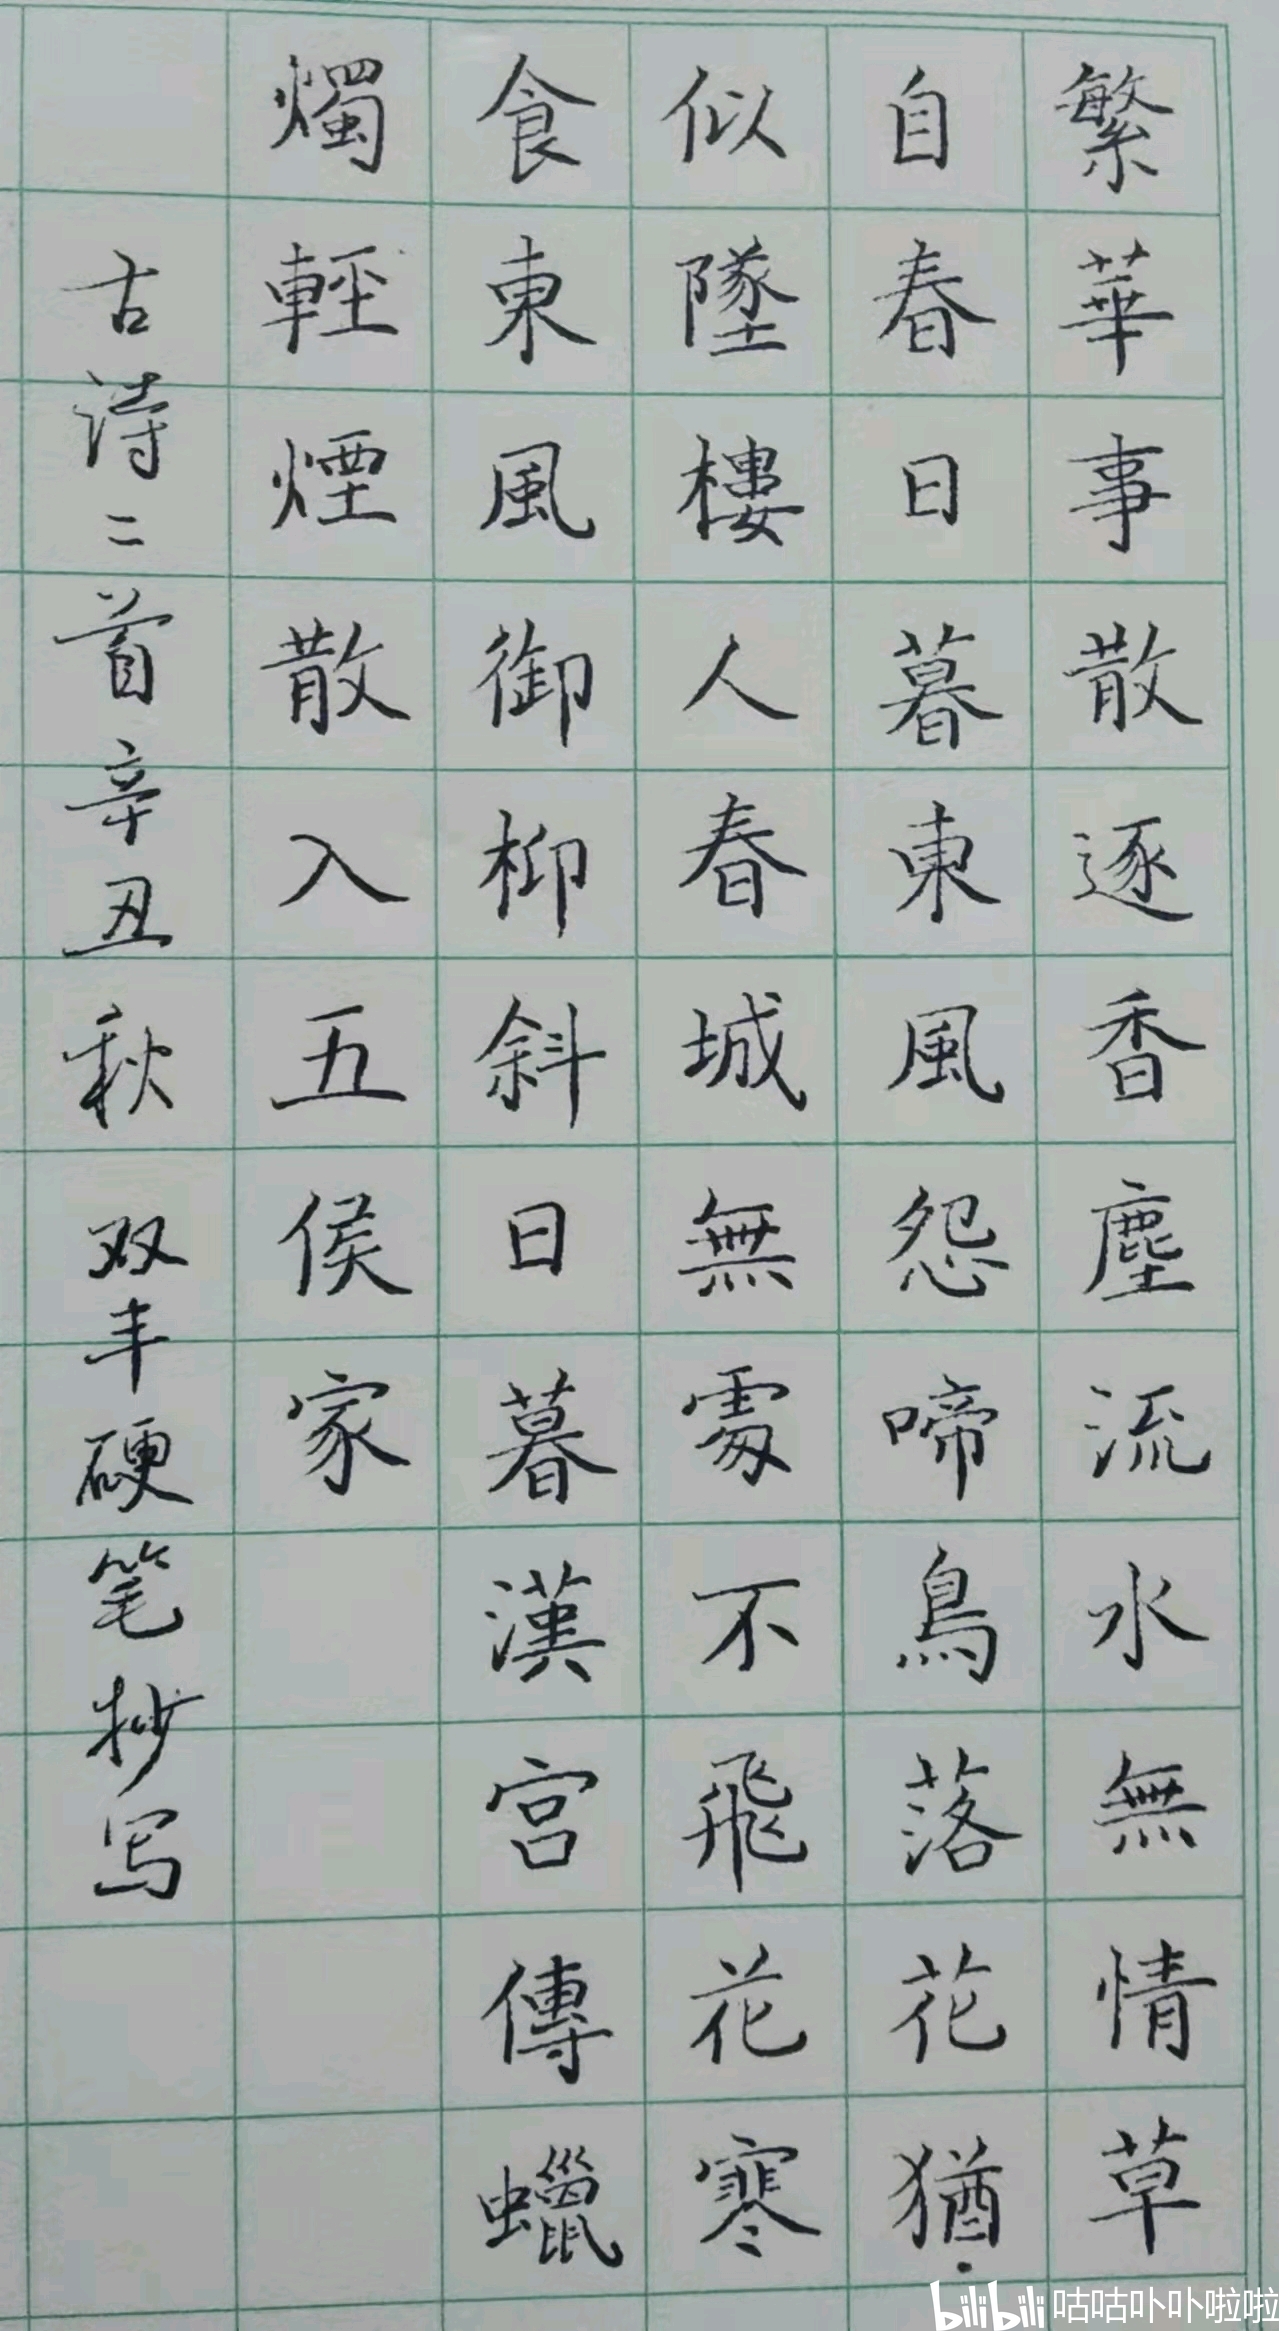 繁華事散逐香塵流水無情草
自春日暮東風怨啼鳥落花猶
似墜樓人春城無處不飛花寒
食東風御柳斜日暮漢宮傳蠟
燭輕煙散入五侯家
古诗二首辛丑秋双丰硬笔抄写
bilibili 咕咕卟卟啦啦